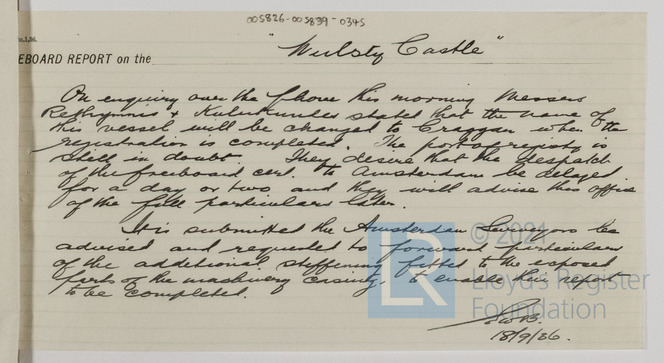 005826-005839-0345
"Wulsty Castle"
EBOARD REPORT on the
On enquiry over the phone this morning Messrs
Rethymnis & Kulukundis stated that the name of
this vessel will be changed to Craggan when the
registration is completed. The port of registry is
still in doubt. They desire that the despatch
of the freeboard cert. to Amsterdam be delayed
for a day or two, and they will advise this office
of the full particulars later.
It is submitted the Amsterdam Surveyors be
advised and requested to forward particulars
of the additional stiffening fitted to the exposed
parts of the machinery casing, to enable this report
to be completed.
18/9/36.
© 2021
LR
Lloyd's Register
Foundation